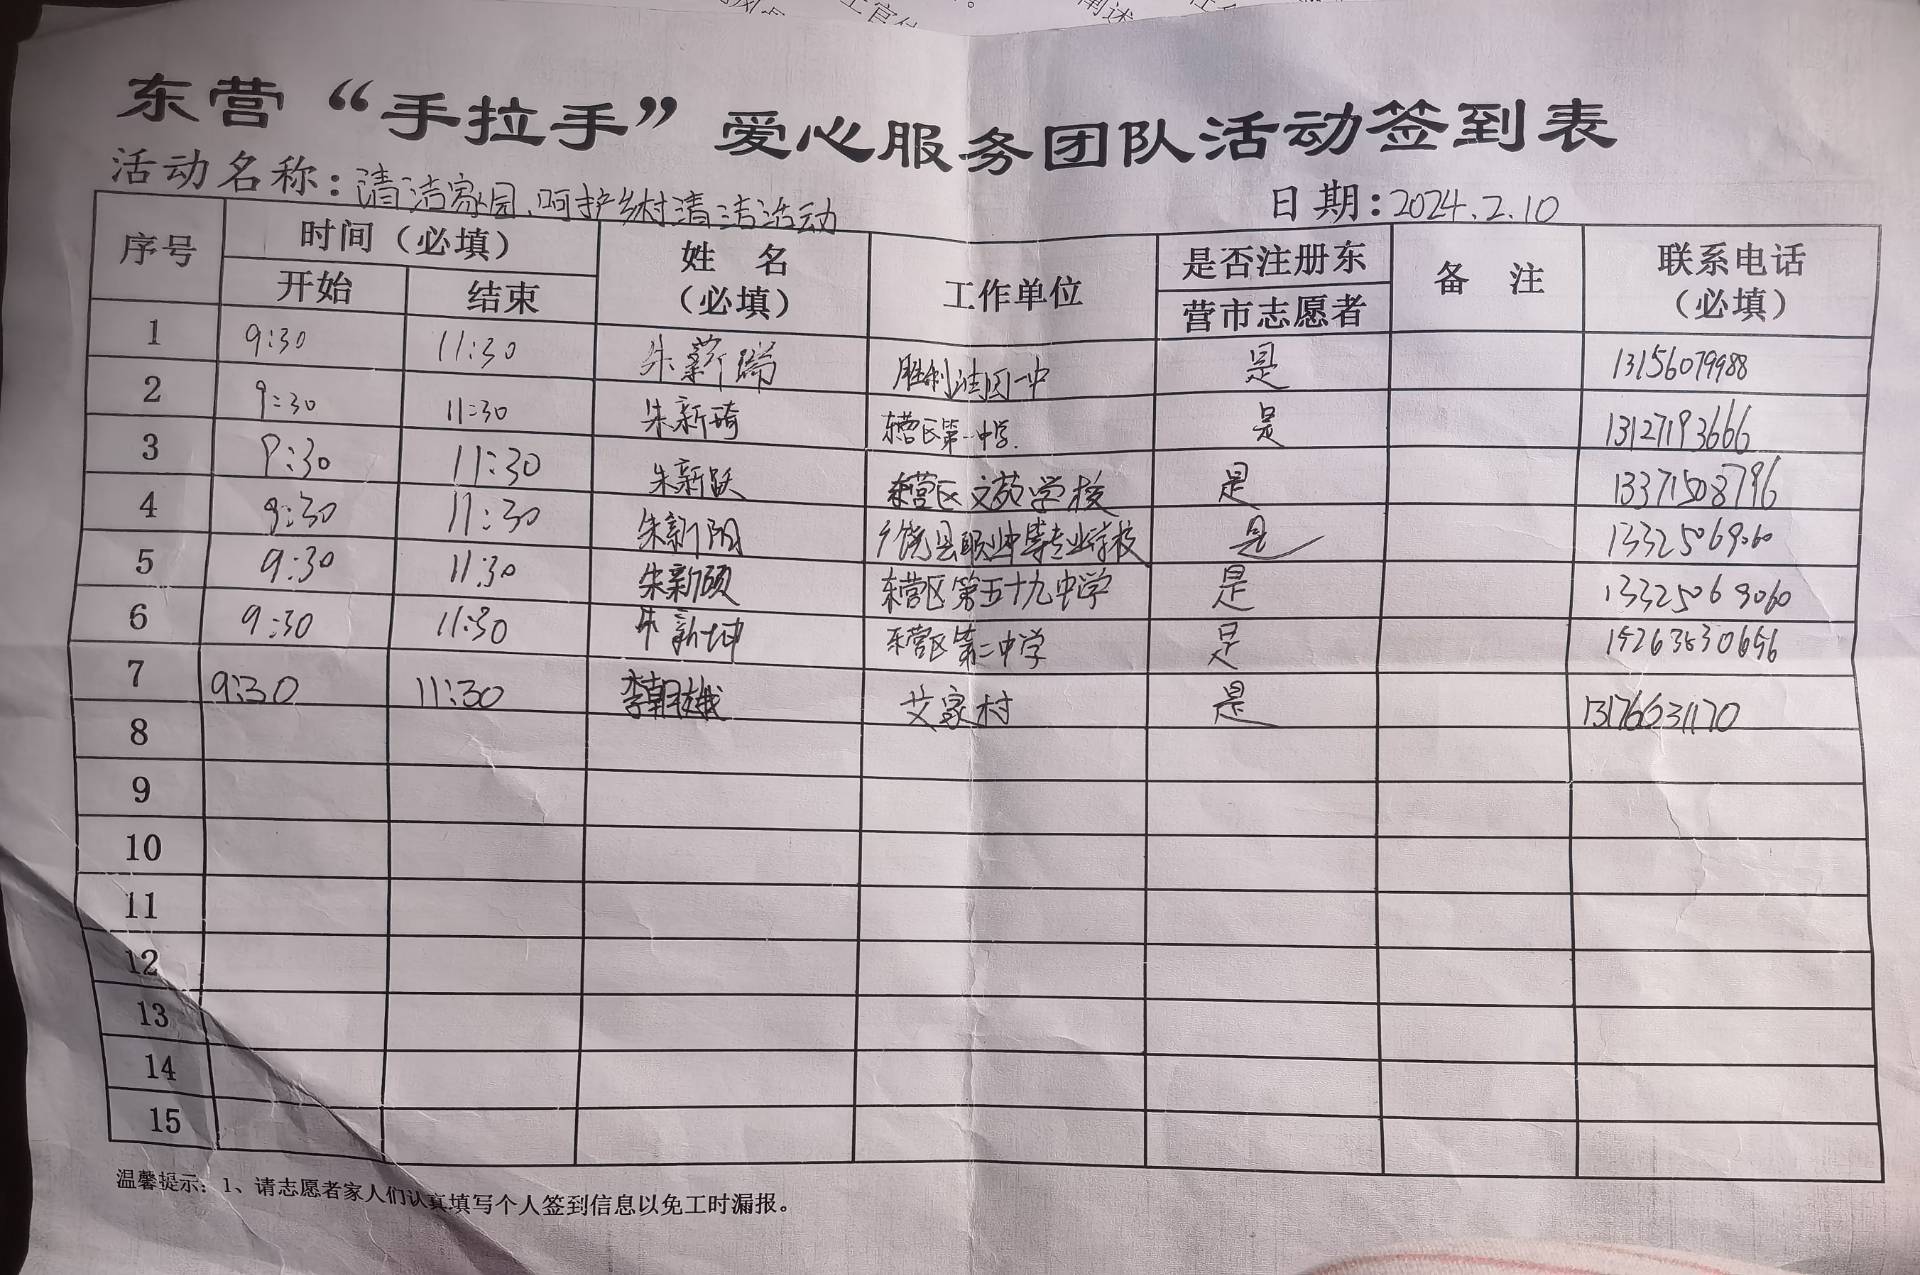 东营“手拉手”爱心服务团队活动签到表
活动名称：清洁家园、呵护乡村清洁活动 日期：2024.2.10
序号 时间（必填） 姓 名（必填） 工作单位 是否注册东营市志愿者 备 注 联系电话（必填）
开始 结束
1 9:30 11:30 朱薪瑞 胜利油田一中 是 13156079988
2 9:30 11:30 朱新琦 东营区第一中学. 是 13127193666
3 9:30 11:30 朱新跃 东营区文苑学校 是 13371508796
4 9:30 11:30 朱新阳 广饶县职业中等专业学校 是 13325069060
5 9:30 11:30 朱新硕 东营区第五十九中学 是 13325069060
6 9:30 11:30 朱新坤 东营区第二中学 是
7 9:30 11:30 李朝娥 艾家村 是 13176631170
8
9
10
11
12
13
14
15
温馨提示：1、请志愿者家人们认真填写个人签到信息以免工时漏报。